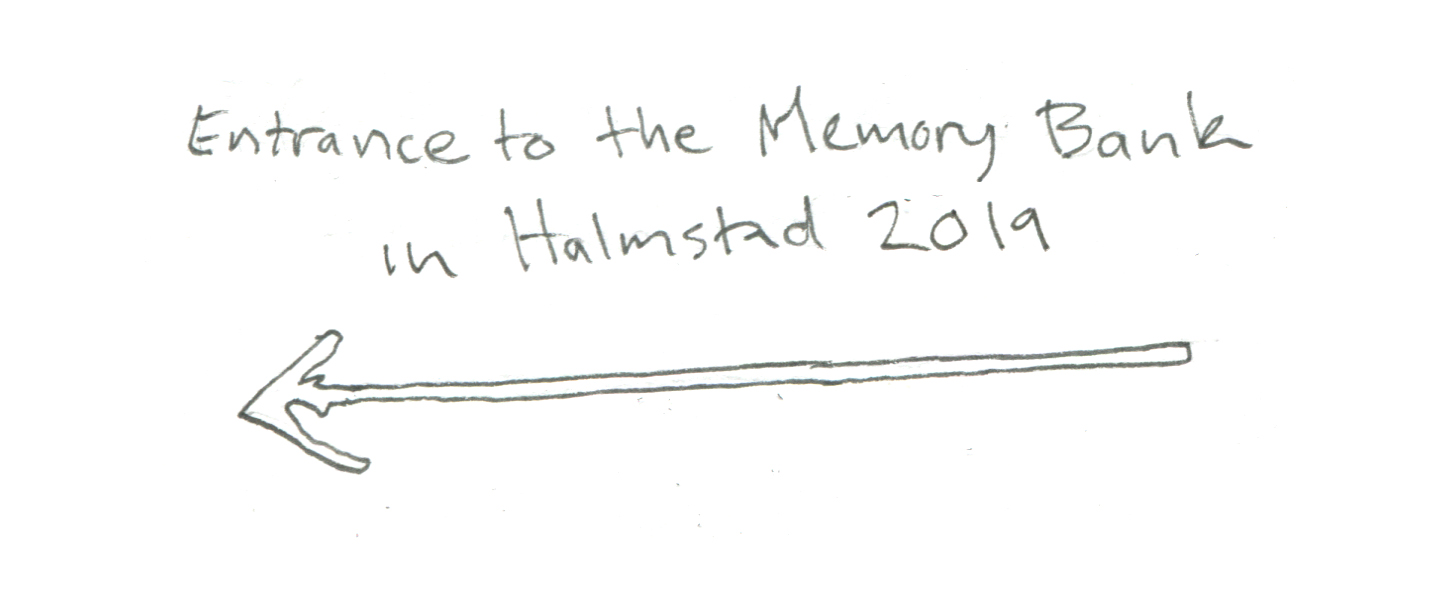 Entrance to the Memory Bank
in Halmstad 2019